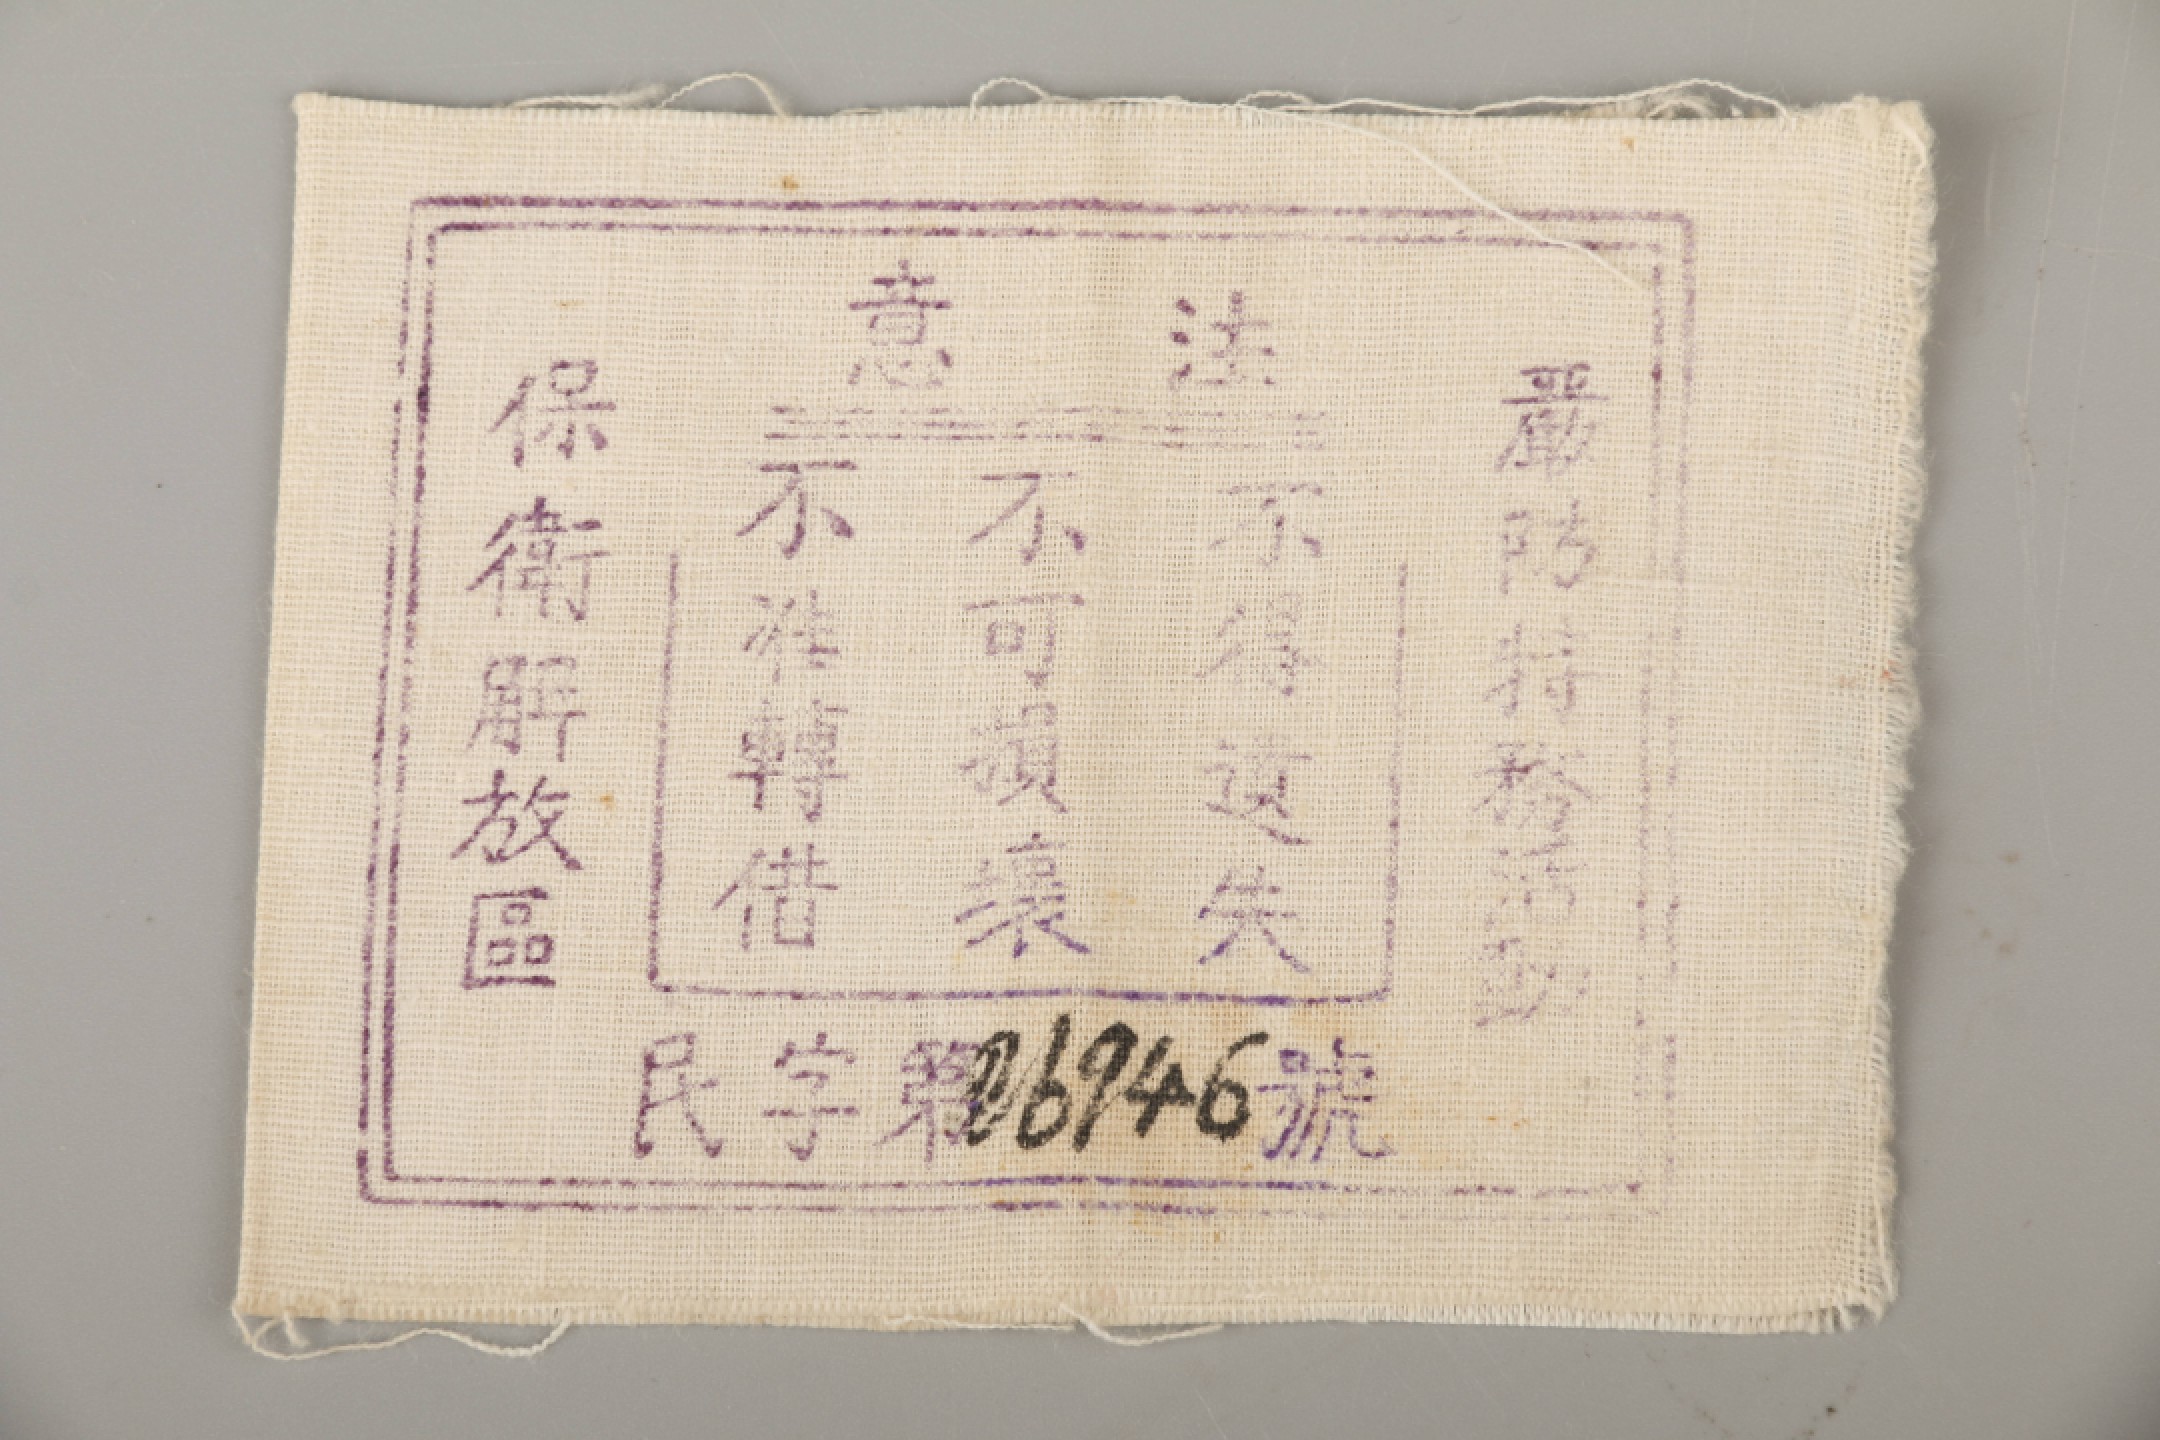 嚴防特務活動
注意
不得遺失
不可損壞
不准轉借
保衛解放區
民字第26946號